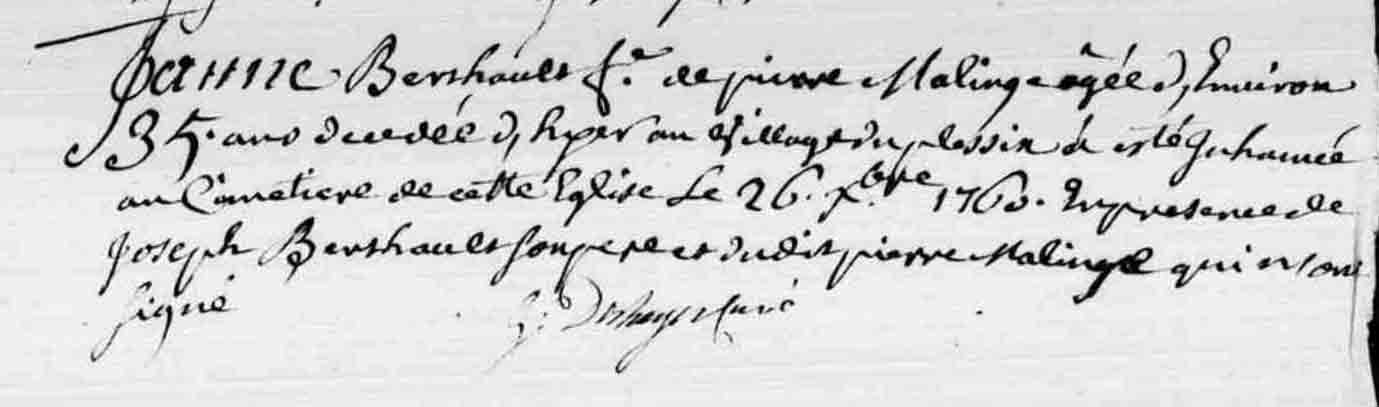 Janne Bershault f.e de pierre Malinge âgée d'Environ
35. ans decedée d'hyer au village du plessix a esté Inhumée
au Cimetiere de cette Eglise Le 26. x.bre 1760. En presence de
Joseph Bershault son pere et dudit pierre Malinge qui n'ont
signé
Deshayes Curé